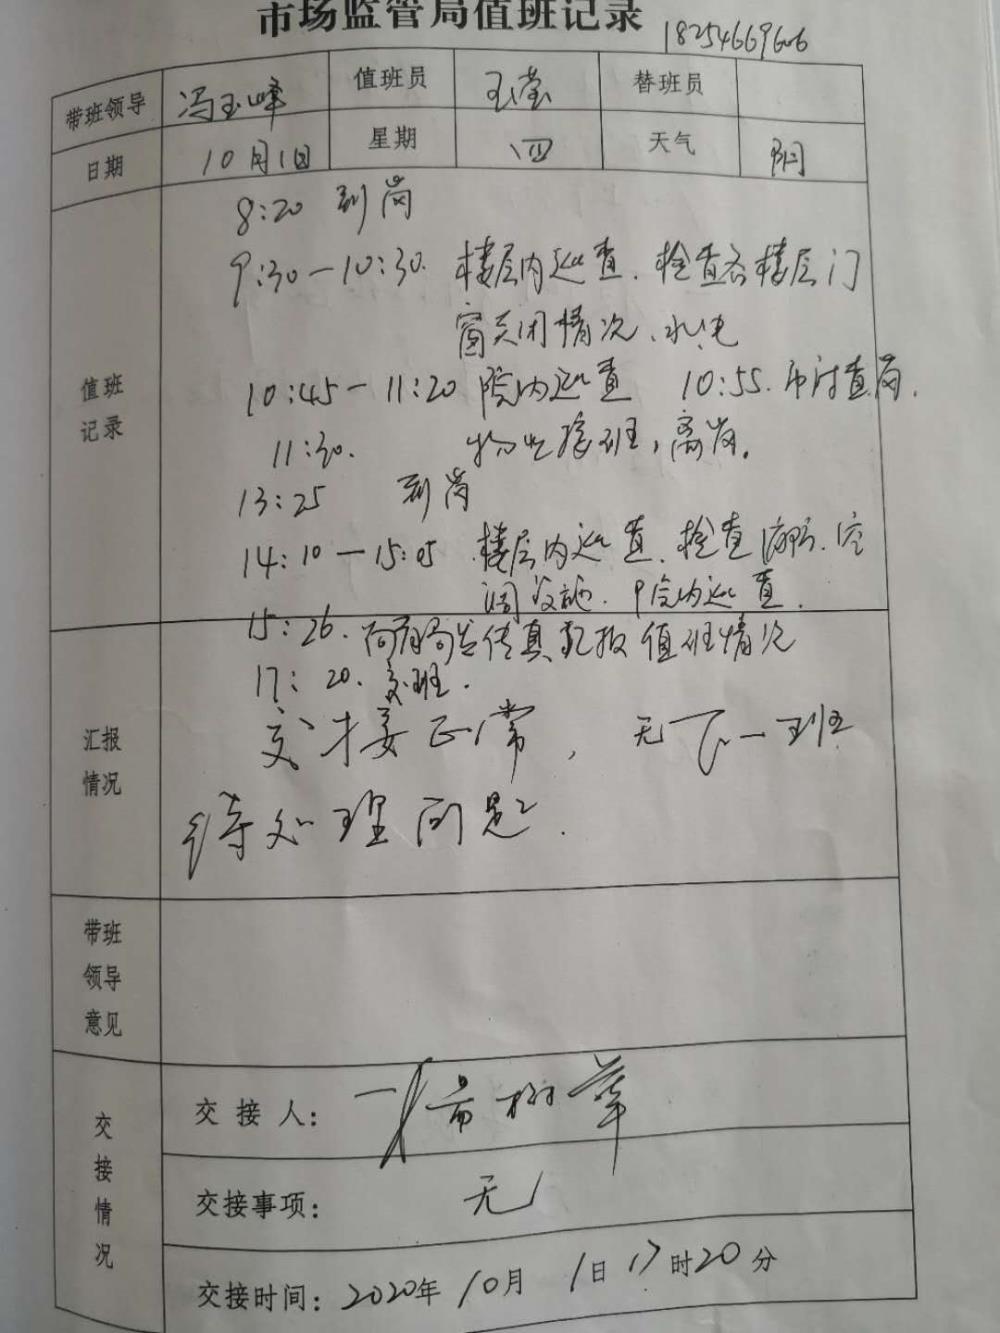 市场监管局值班记录
18254669606
带班领导 冯玉峰 值班员 王莹 替班员
日期 10月1日 星期 四 天气 阴
值班记录
8:20 到岗
9:30-10:30. 楼层内巡查. 检查各楼层门
窗关闭情况、水、电
10:45-11:20 院内巡查 10:55. 市府查岗.
11:30. 物业接班,离岗.
13:25 到岗
14:10-15:05 楼层内巡查. 检查消防、空
调设施. 院内巡查.
15:26. 向省局发传真汇报值班情况
17:20. 交班.
汇报情况
交接正常, 无下一班
待处理问题.
带班领导意见
交接情况
交接人:
交接事项: 无
交接时间: 2020年10月1日17时20分